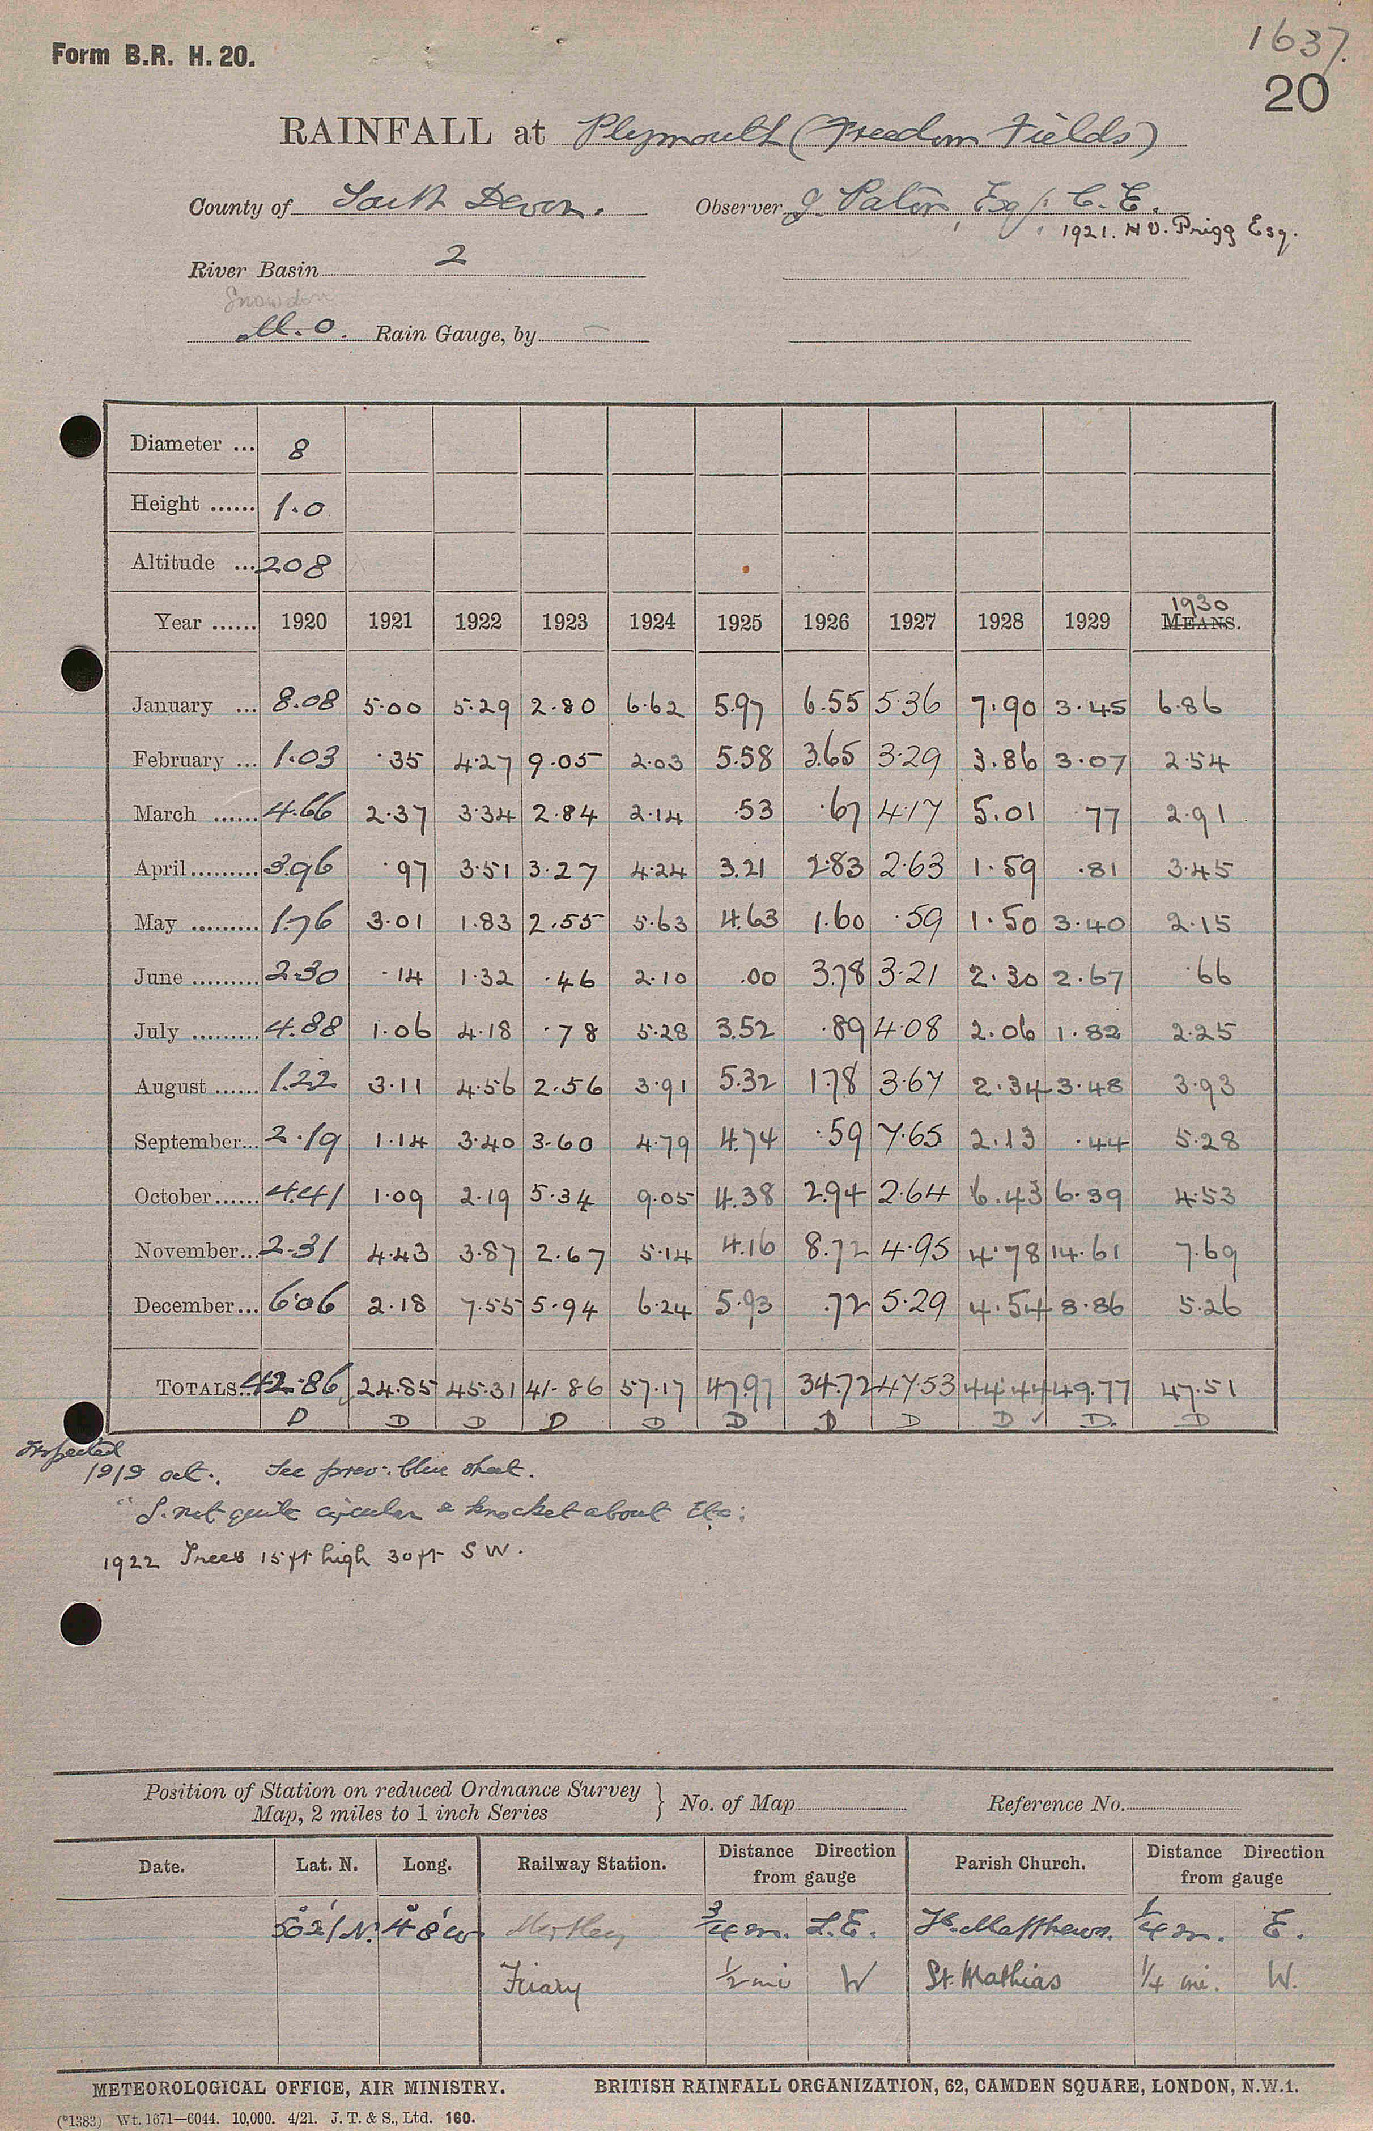 1637.
Form B.R. H. 20.
20
RAINFALL at Plymouth (Freedom Fields)
County of South Devon. Observer J. Paton, Esq., C.E.
1921. H V. Prigg Esq.
River Basin 2
Snowdon
M.O. Rain Gauge, by -
Diameter ... 8
Height ...... 1.0
Altitude ... 208
1930
Year ...... 1920 1921 1922 1923 1924 1925 1926 1927 1928 1929 MEANS.
January ... 8.08 5.00 5.29 2.80 6.62 5.97 6.55 5.36 7.90 3.45 6.86
February ... 1.03 .35 4.27 9.05 2.03 5.58 3.65 3.29 3.86 3.07 2.54
March ...... 4.66 2.37 3.34 2.84 2.14 .53 .67 4.17 5.01 .77 2.91
April ......... 3.96 .97 3.51 3.27 4.24 3.21 2.83 2.63 1.59 .81 3.45
May ......... 1.76 3.01 1.83 2.55 5.63 4.63 1.60 .59 1.50 3.40 2.15
June ......... 2.30 .14 1.32 .46 2.10 .00 3.78 3.21 2.30 2.67 .66
July ......... 4.88 1.06 4.18 .78 5.28 3.52 .89 4.08 2.06 1.82 2.25
August ...... 1.22 3.11 4.56 2.56 3.91 5.32 1.78 3.67 2.34 3.48 3.93
September... 2.19 1.14 3.40 3.60 4.79 4.74 .59 7.65 2.13 .44 5.28
October...... 4.41 1.09 2.19 5.34 9.05 4.38 2.94 2.64 6.43 6.39 4.53
November... 2.31 4.43 3.87 2.67 5.14 4.16 8.72 4.95 4.78 14.61 7.69
December... 6.06 2.18 7.55 5.94 6.24 5.93 .72 5.29 4.54 8.86 5.26
TOTALS... 42.86 24.85 45.31 41.86 57.17 47.97 34.72 47.53 44.44 49.77 47.51
D D D D D D D D D ✓ D. D
Inspected
1919 oct. See prev. blue sheet.
"S. not quite circular & knocket about Etc:
1922 Trees 15ft high 30ft SW.
Position of Station on reduced Ordnance Survey
Map, 2 miles to 1 inch Series } No. of Map Reference No.
Date. Lat. N. Long. Railway Station. Distance Direction from gauge Parish Church. Distance Direction from gauge
50° 21' N. 4° 8' W Mutley 3/4 m. S.E. St. Matthews. 1/4 m. E.
Friary 1/2 mi W St. Mathias 1/4 mi. W.
METEOROLOGICAL OFFICE, AIR MINISTRY. BRITISH RAINFALL ORGANIZATION, 62, CAMDEN SQUARE, LONDON, N.W.1.
(*1383) Wt. 1671—6044. 10,000. 4/21. J. T. & S., Ltd. 160.